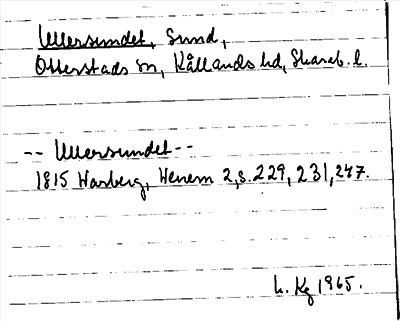 Ullersundet, Sund,
Otterstads sn, Kållands hd, Skarab. l.
-- Ullersundet --
1815 Warberg, Wenern 2, s. 229, 231, 247.
L. Kg 1965.